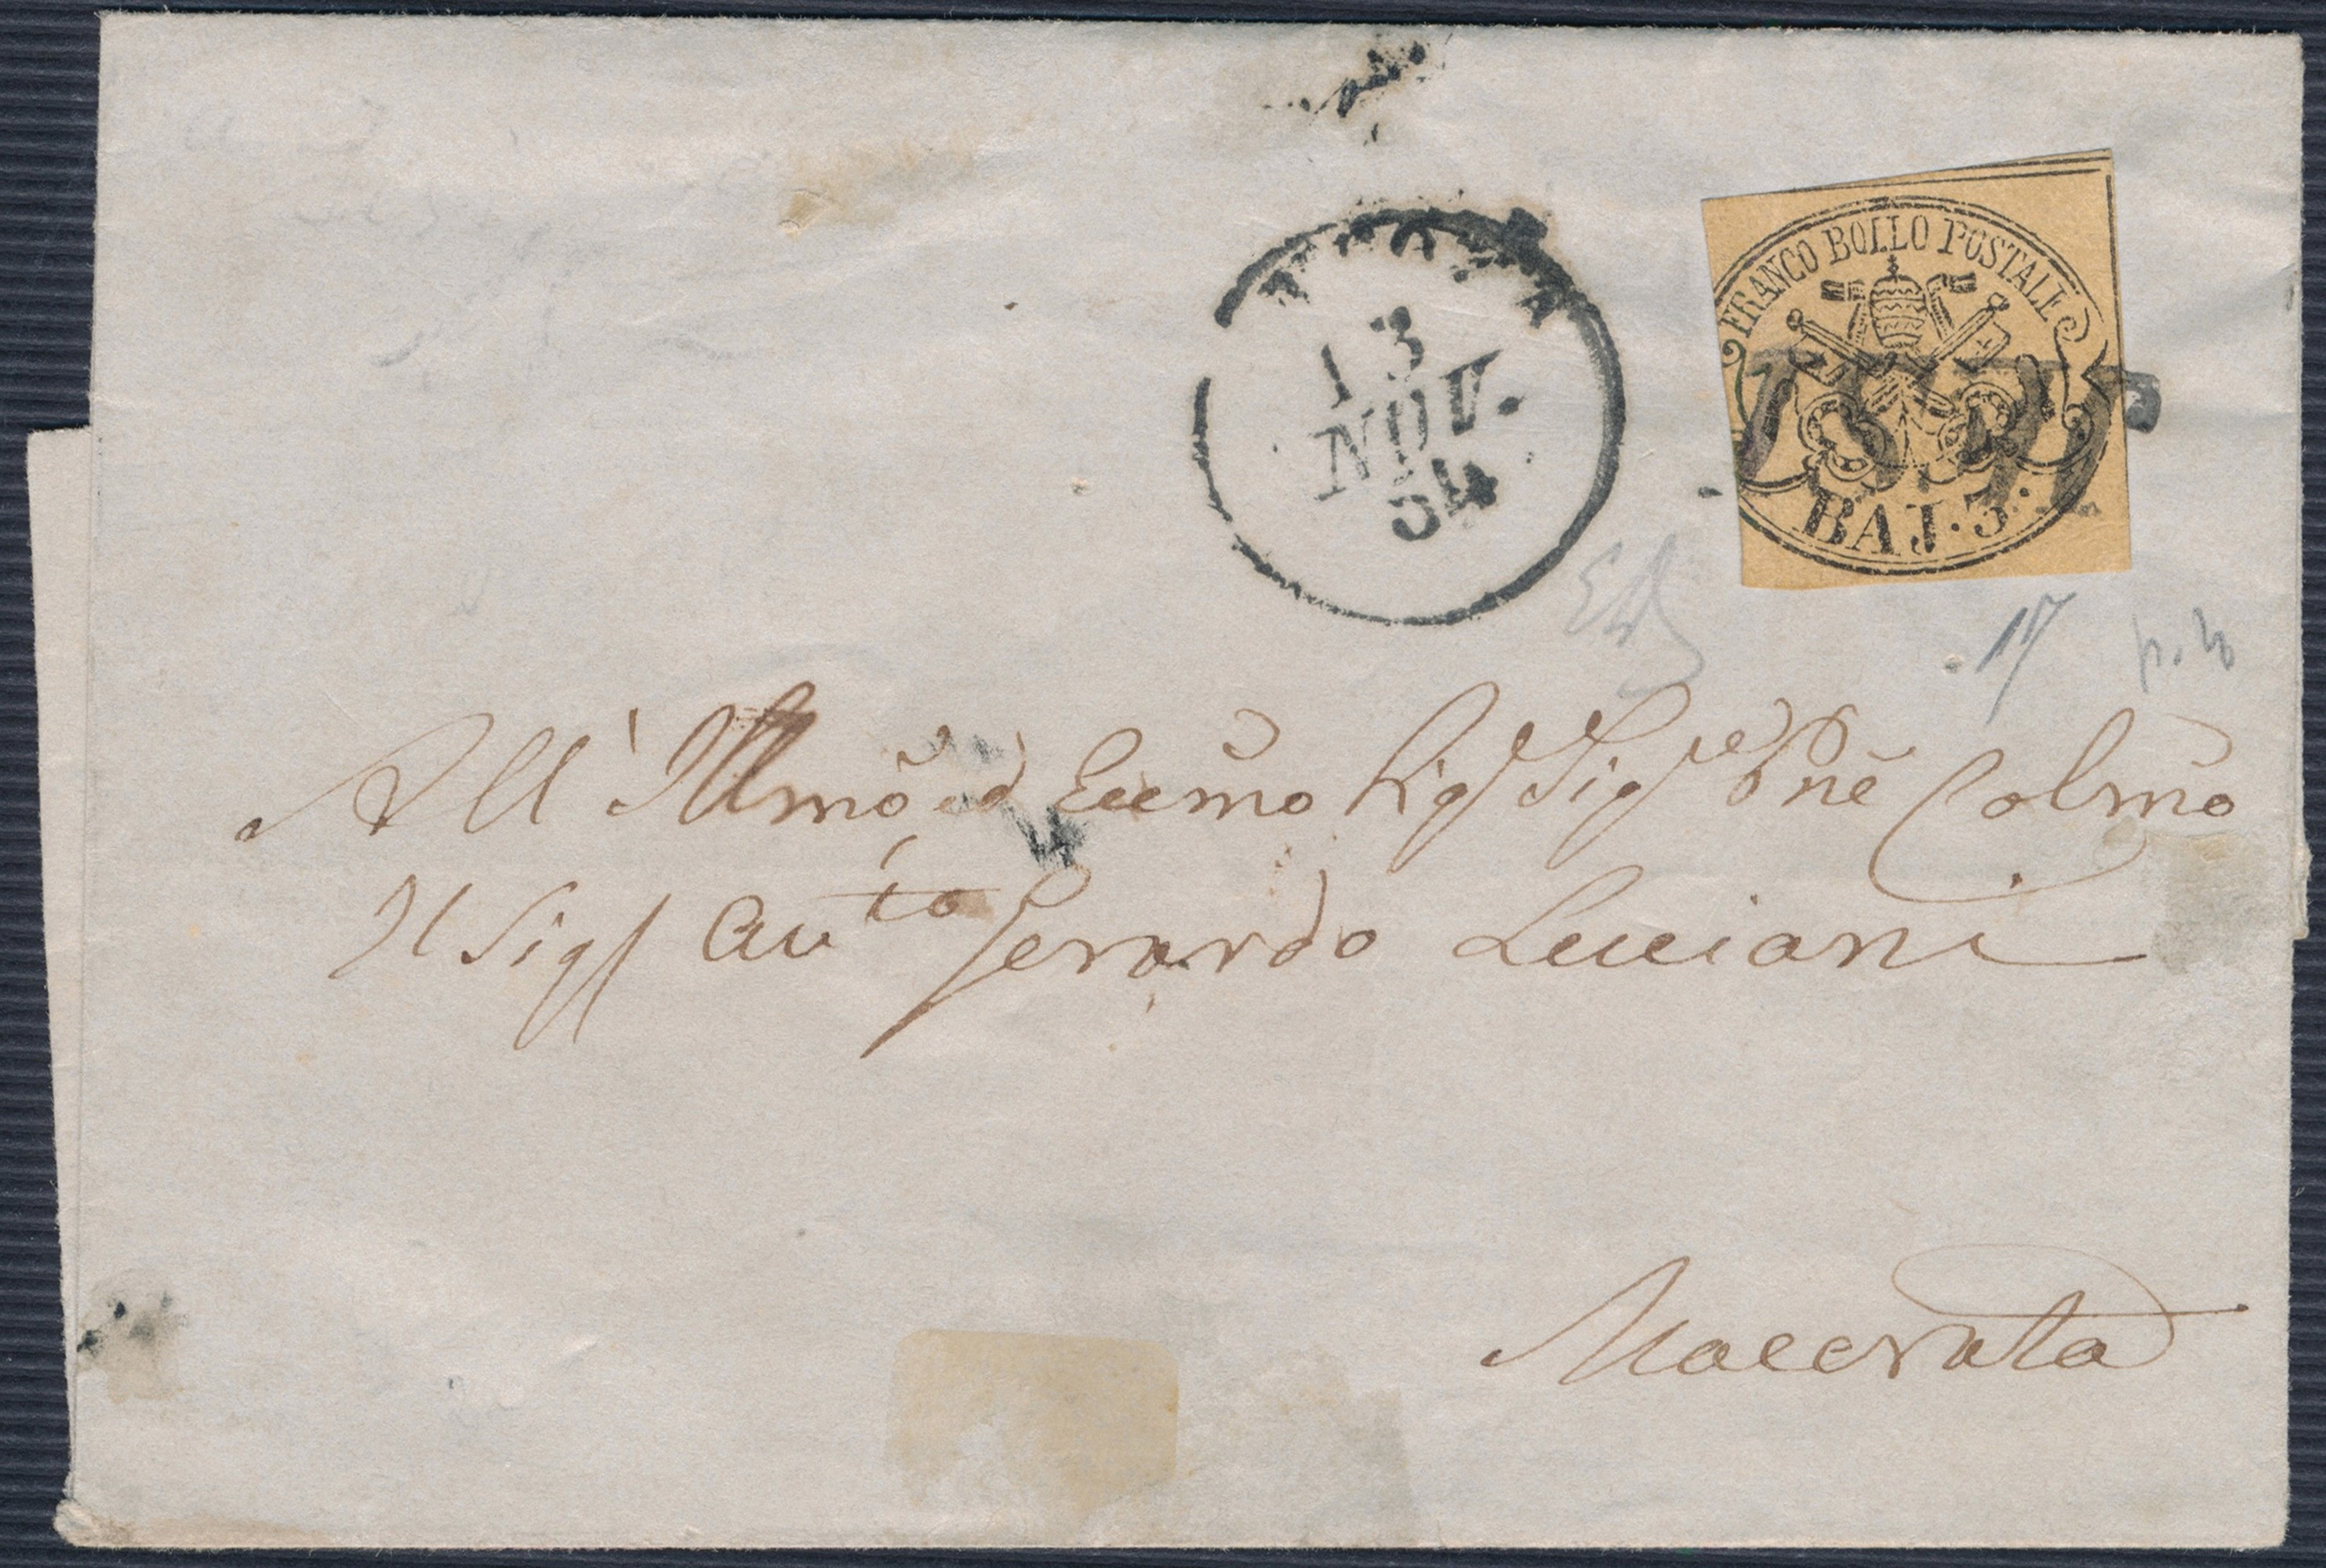 13
NOV.
54
FRANCO BOLLO POSTALE
BAJ. 3.
17
All' Illmõ ed Eccmõ Sig Sig Pne Colmõ
Il Sig Avto Gerardo Luciani
Macerata